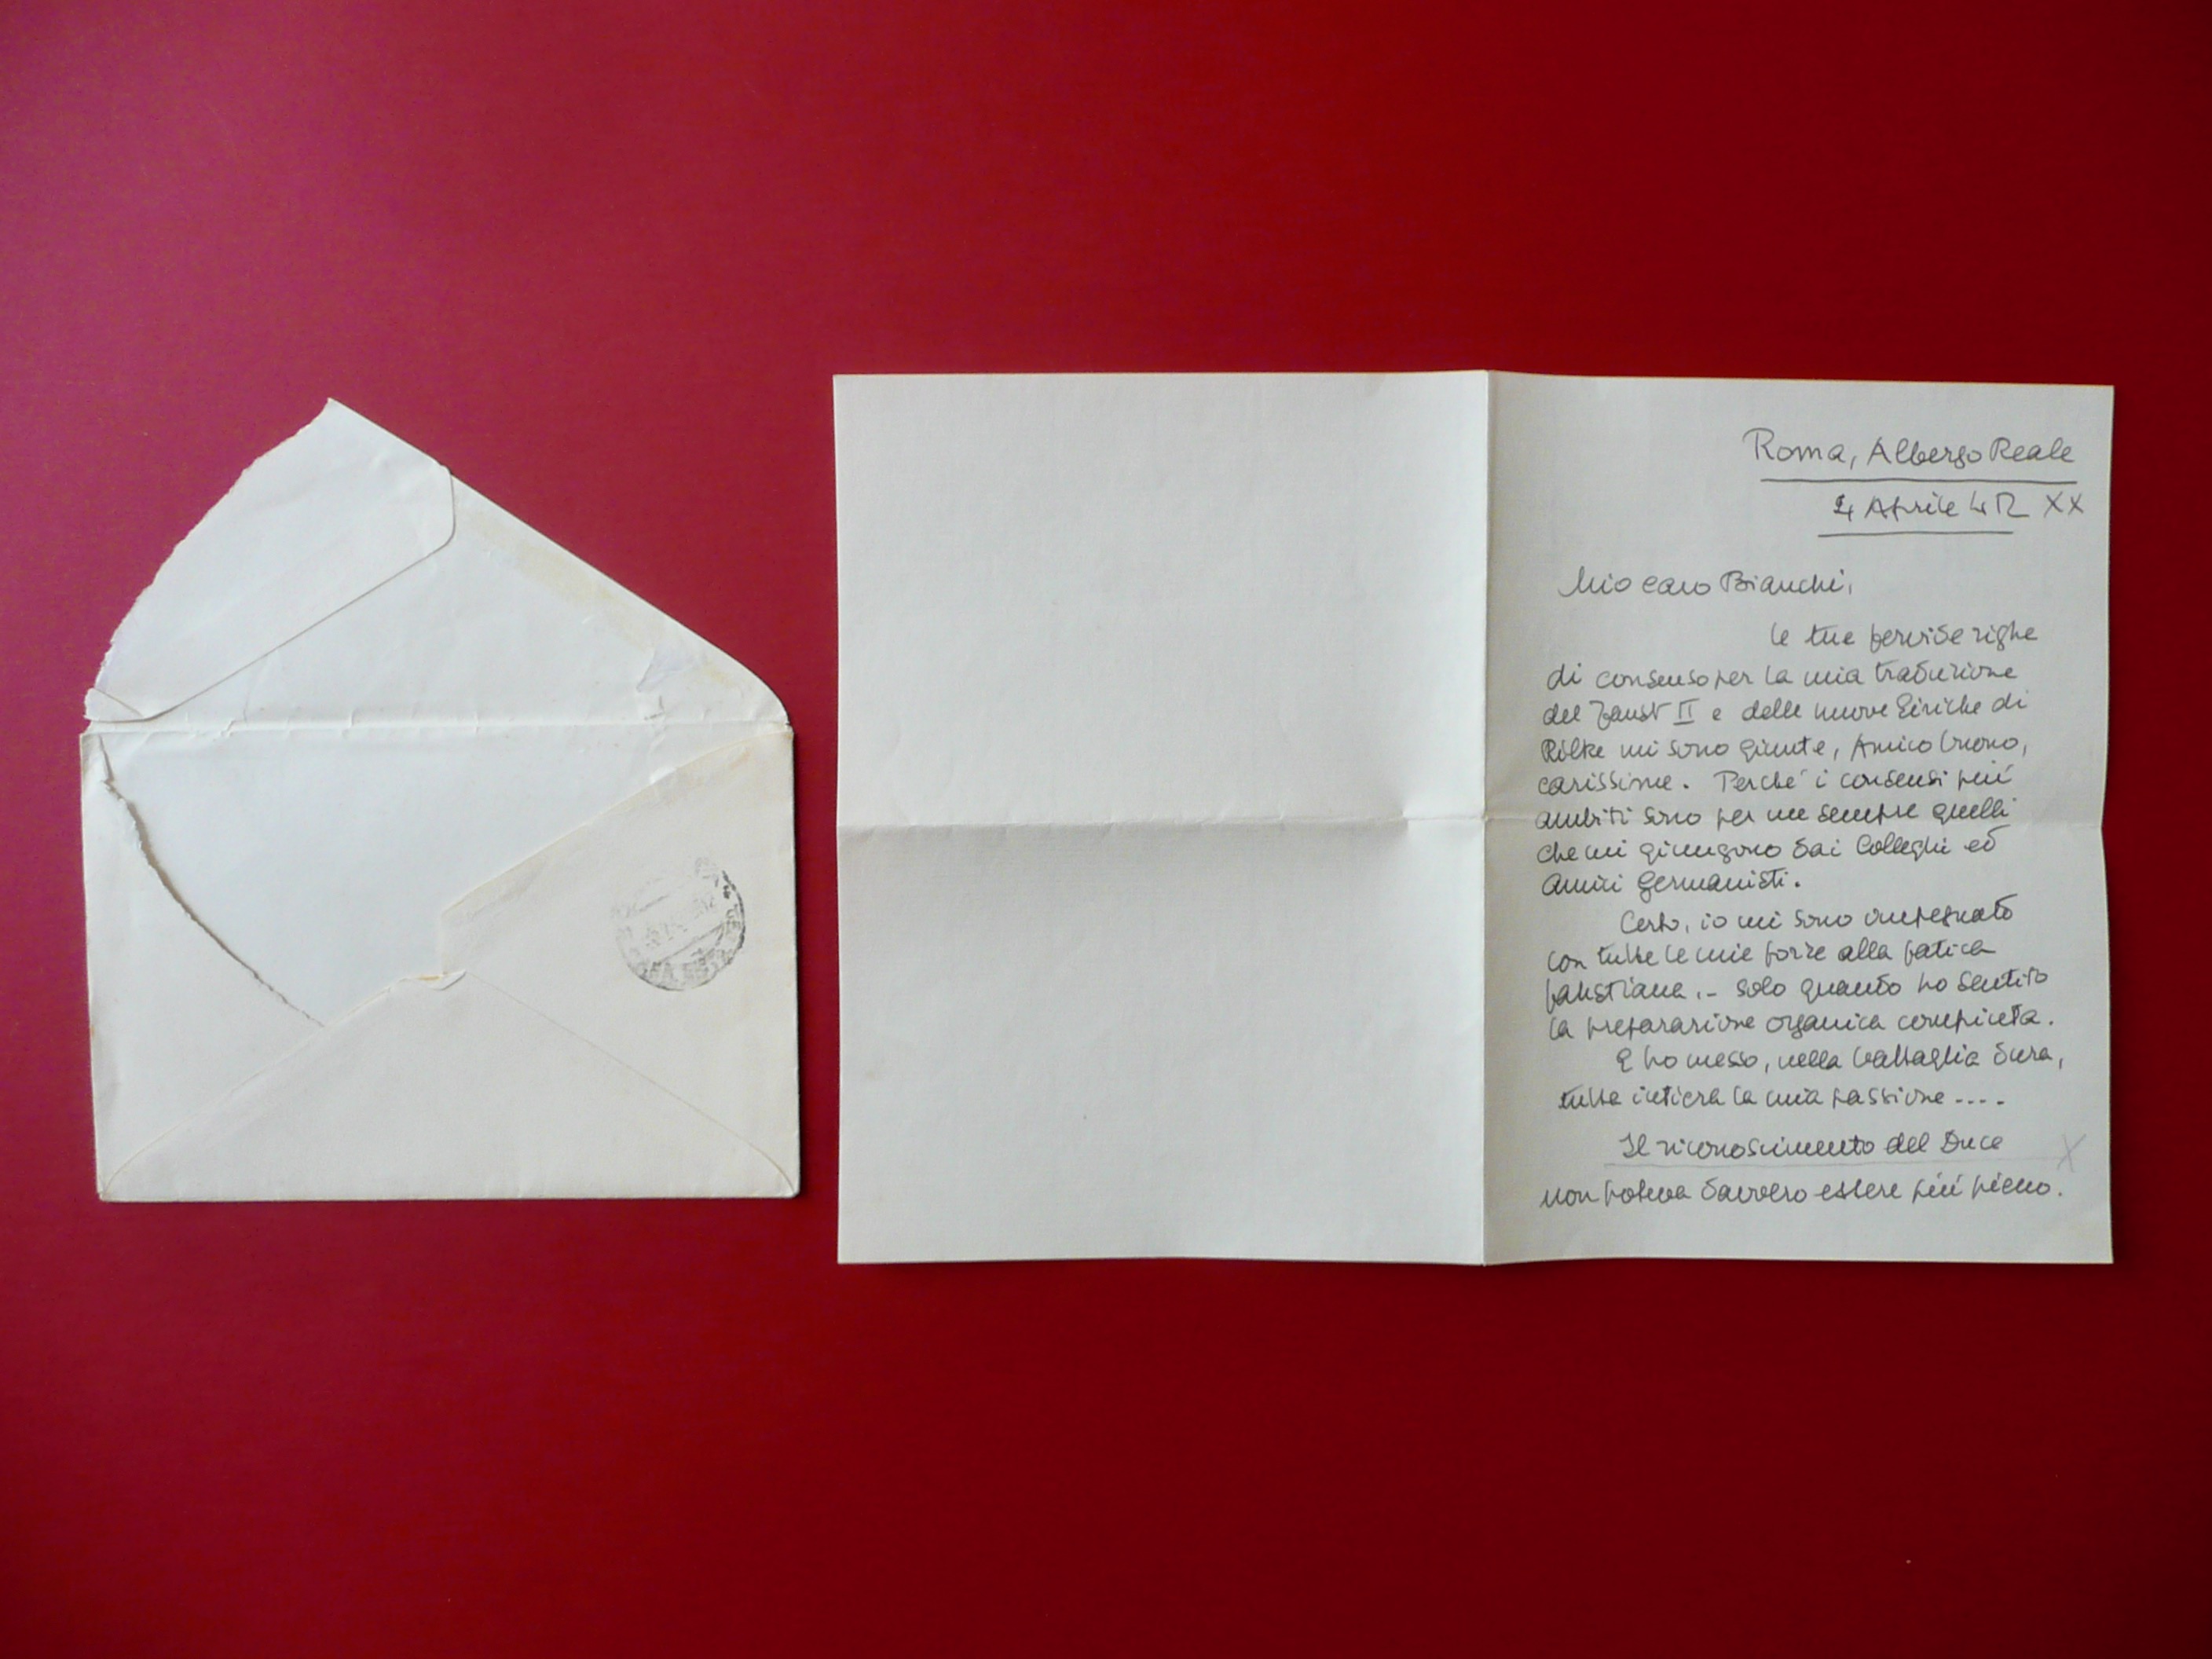 Roma, Albergo Reale
4 Aprile 42 XX
Mio caro Bianchi,
le tue fervide righe
di consenso per la mia traduzione
del Faust II e delle nuove Liriche di
Rilke mi sono giunte, Amico buono,
carissime. Perché i consensi più
ambiti sono per me sempre quelli
che mi giungono dai Colleghi ed
amici germanisti.
Certo, io mi sono impegnato
con tutte le mie forze alla fatica
faustiana.- solo quando ho sentito
la preparazione organica compiuta.
E ho messo, nella battaglia dura,
tutta intiera la mia passione ....
Il riconoscimento del Duce
non poteva davvero essere più pieno.